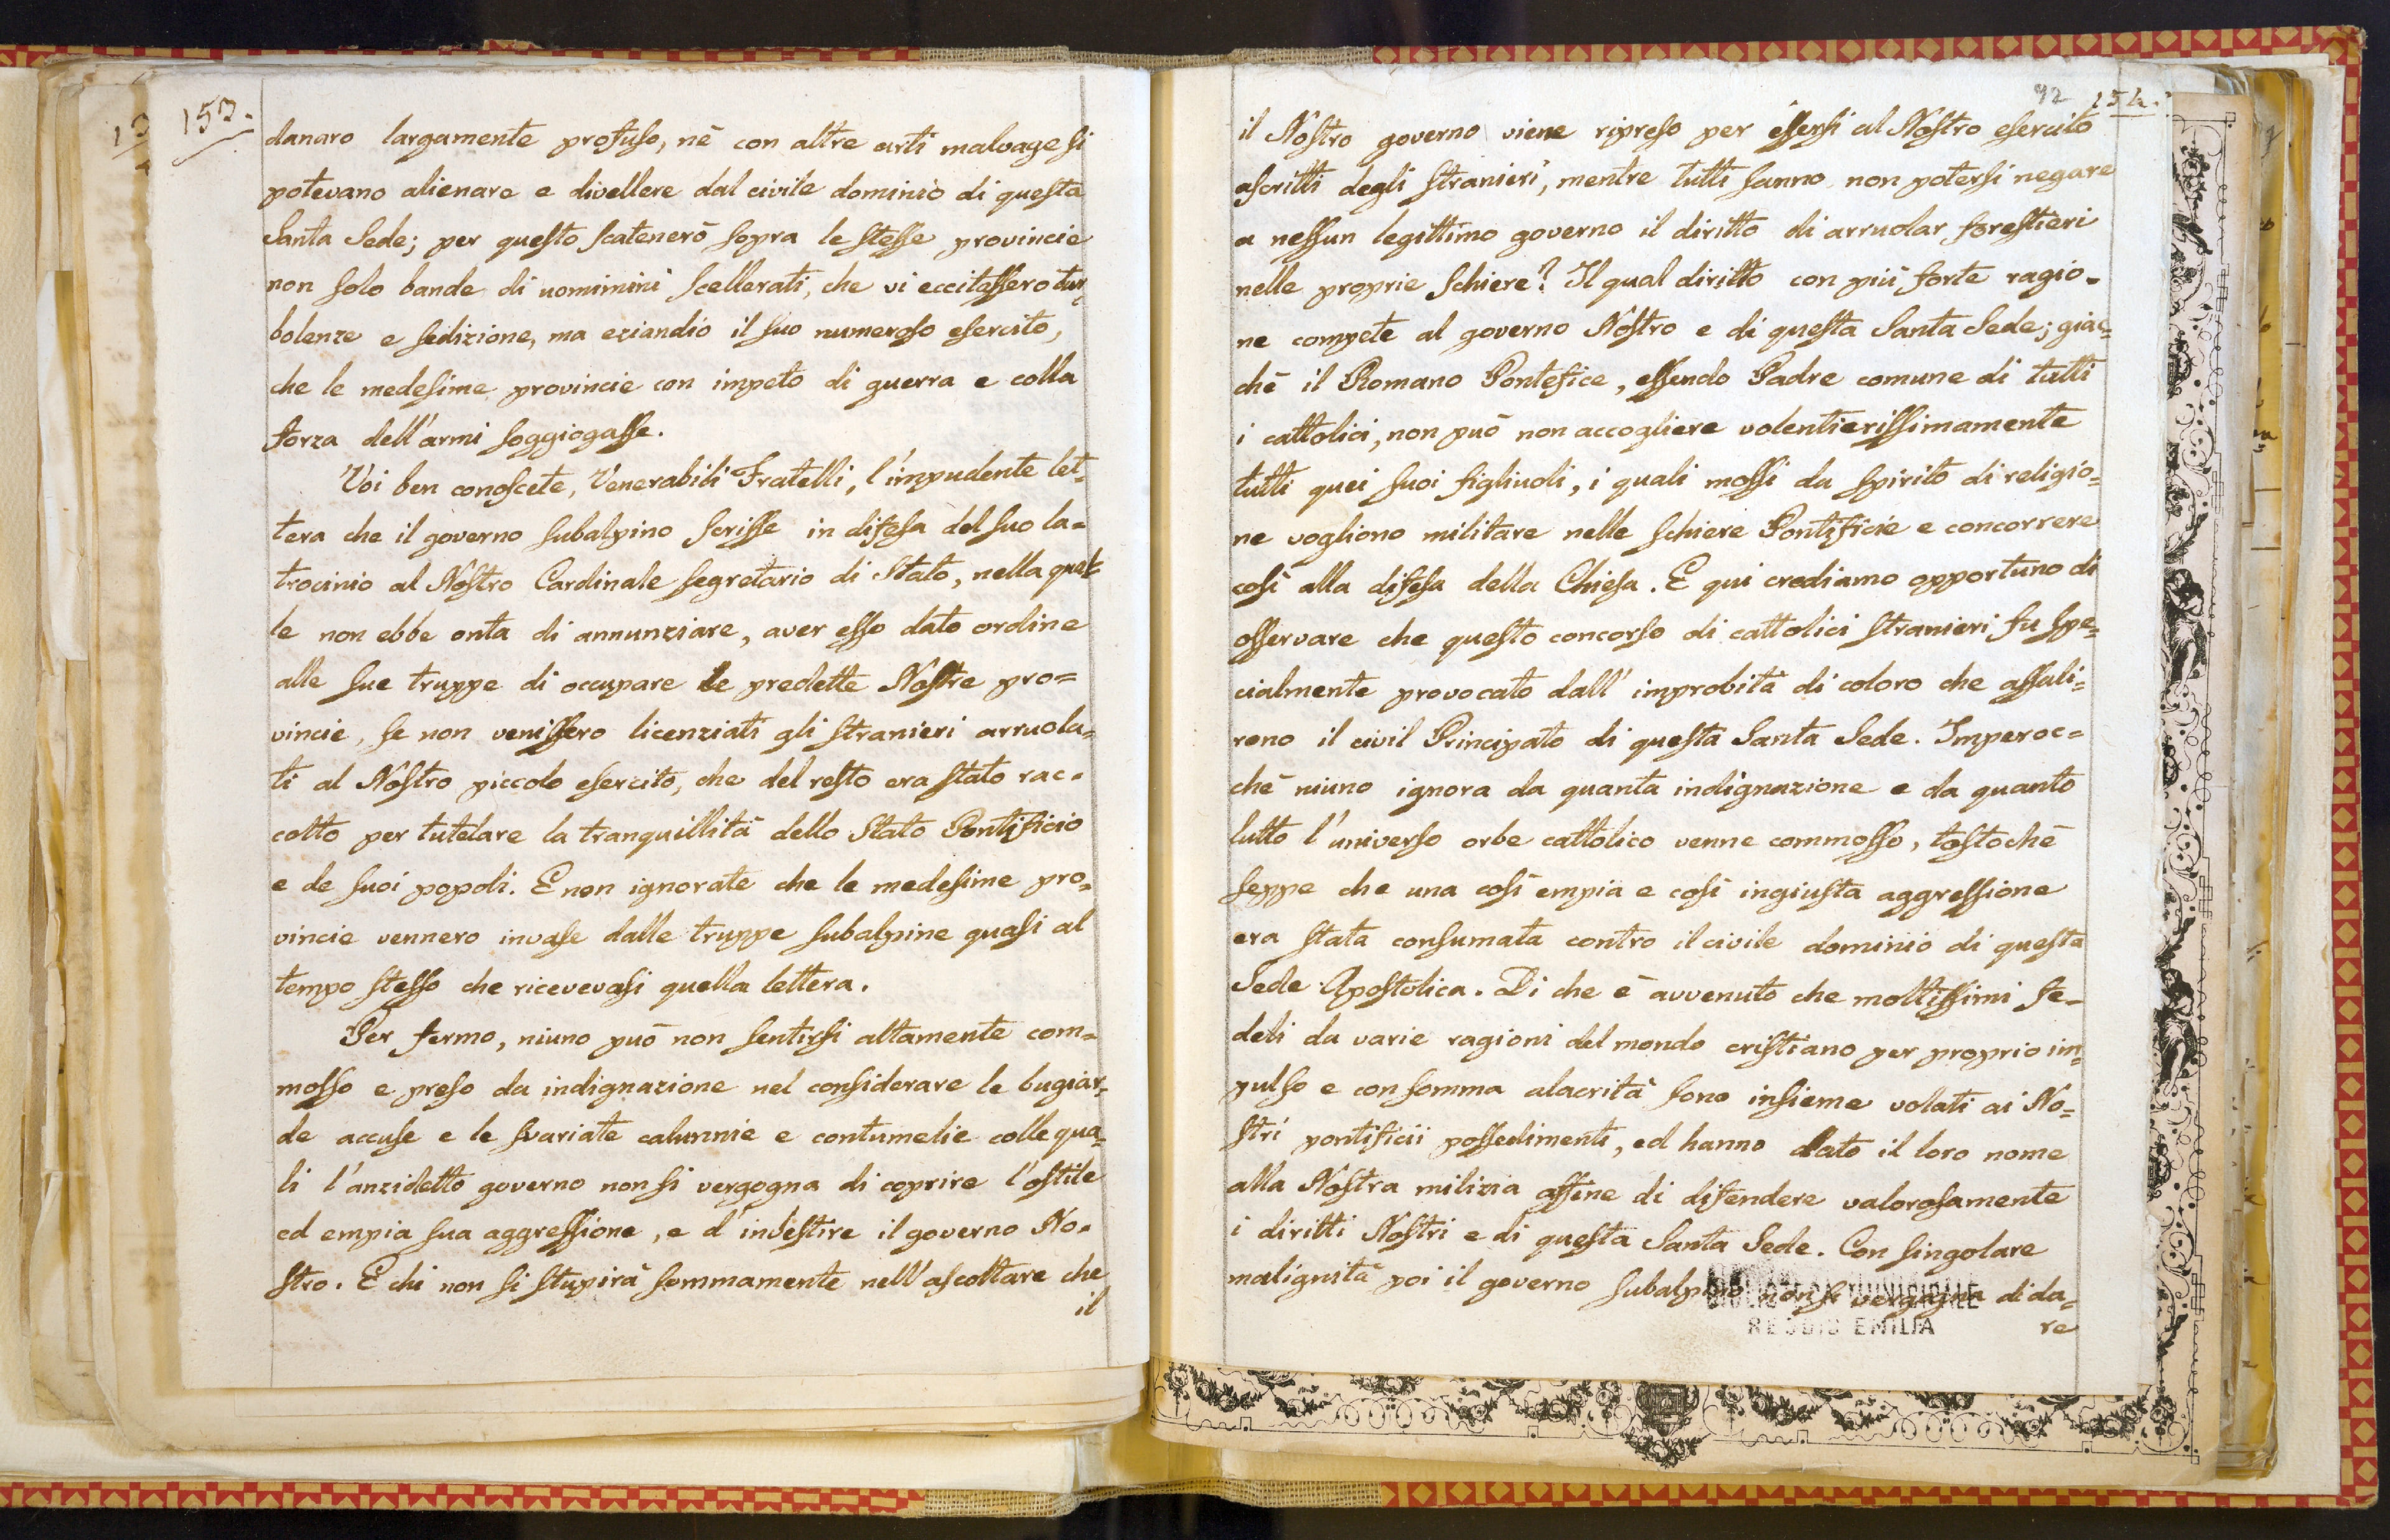 153.
danaro largamente profuso, nè con altre arti malvage si
potevano alienare e divellere dal civile dominio di questa
Santa Sede; per questo scatenerò sopra le stesse provincie
non solo bande di uomimini scellerati, che vi eccitassero tur=
bolenze e sedizione, ma eziandio il suo numeroso esercito,
che le medesime provincie con impeto di guerra e colla
forza dell'armi soggiogasse.
Voi ben conoscete, Venerabili Fratelli, l'impudente let=
tera che il governo subalpino scrisse in difesa del suo la=
trocinio al Nostro Cardinale segretario di Stato, nella qua=
le non ebbe onta di annunziare, aver esso dato ordine
alle sue truppe di occupare le predette Nostre pro=
vincie, se non venissero licenziati gli stranieri arruola=
ti al Nostro piccolo esercito, che del resto era stato rac=
colto per tutelare la tranquillità dello Stato Pontificio
e de suoi popoli. E non ignorate che le medesime pro=
vincie vennero invase dalle truppe subalpine quasi al
tempo stesso che ricevevasi quella lettera.
Per fermo, niuno può non sentirsi altamente com=
mosso e preso da indignazione nel considerare le bugiar=
de accuse e le svariate calunnie e contumelie colle qua=
li l'anzidetto governo non si vergogna di coprire l'ostile
ed empia sua aggressione, e d'investire il governo No=
stro. E chi non si stupirà sommamente nell'ascoltare che
il
92 154.
il Nostro governo viene ripreso per essersi al Nostro esercito
ascritti degli stranieri, mentre tutti sanno non potersi negare
a nessun legittimo governo il diritto di arruolar forestieri
nelle proprie schiere? Il qual diritto con più forte ragio=
ne compete al governo Nostro e di questa Santa Sede; giac=
chè il Romano Pontefice, essendo Padre comune di tutti
i cattolici, non può non accogliere volentierissimamente
tutti quei suoi figliuoli, i quali mossi da spirito di religio=
ne vogliono militare nelle schiere Pontificie e concorrere
così alla difesa della Chiesa. E qui crediamo opportuno di
osservare che questo concorso di cattolici stranieri fu spe=
cialmente provocato dall'improbità di coloro che assali=
rono il civil Principato di questa Santa Sede. Imperoc=
chè niuno ignora da quanta indignazione e da quanto
lutto l'universo orbe cattolico venne commosso, tostochè
seppe che una così empia e così ingiusta aggressione
era stata consumata contro il civile dominio di questa
Sede Apostolica. Di che è avvenuto che moltissimi fe=
deli da varie ragioni del mondo cristiano per proprio im=
pulso e con somma alacrità sono insieme volati ai No=
stri pontificii possedimenti, ed hanno dato il loro nome
alla Nostra milizia affine di difendere valorosamente
i diritti Nostri e di questa Santa Sede. Con singolare
malignità poi il governo subalpino non si vergogna di da=
re
MUNICIPALE
REGGIO EMILIA